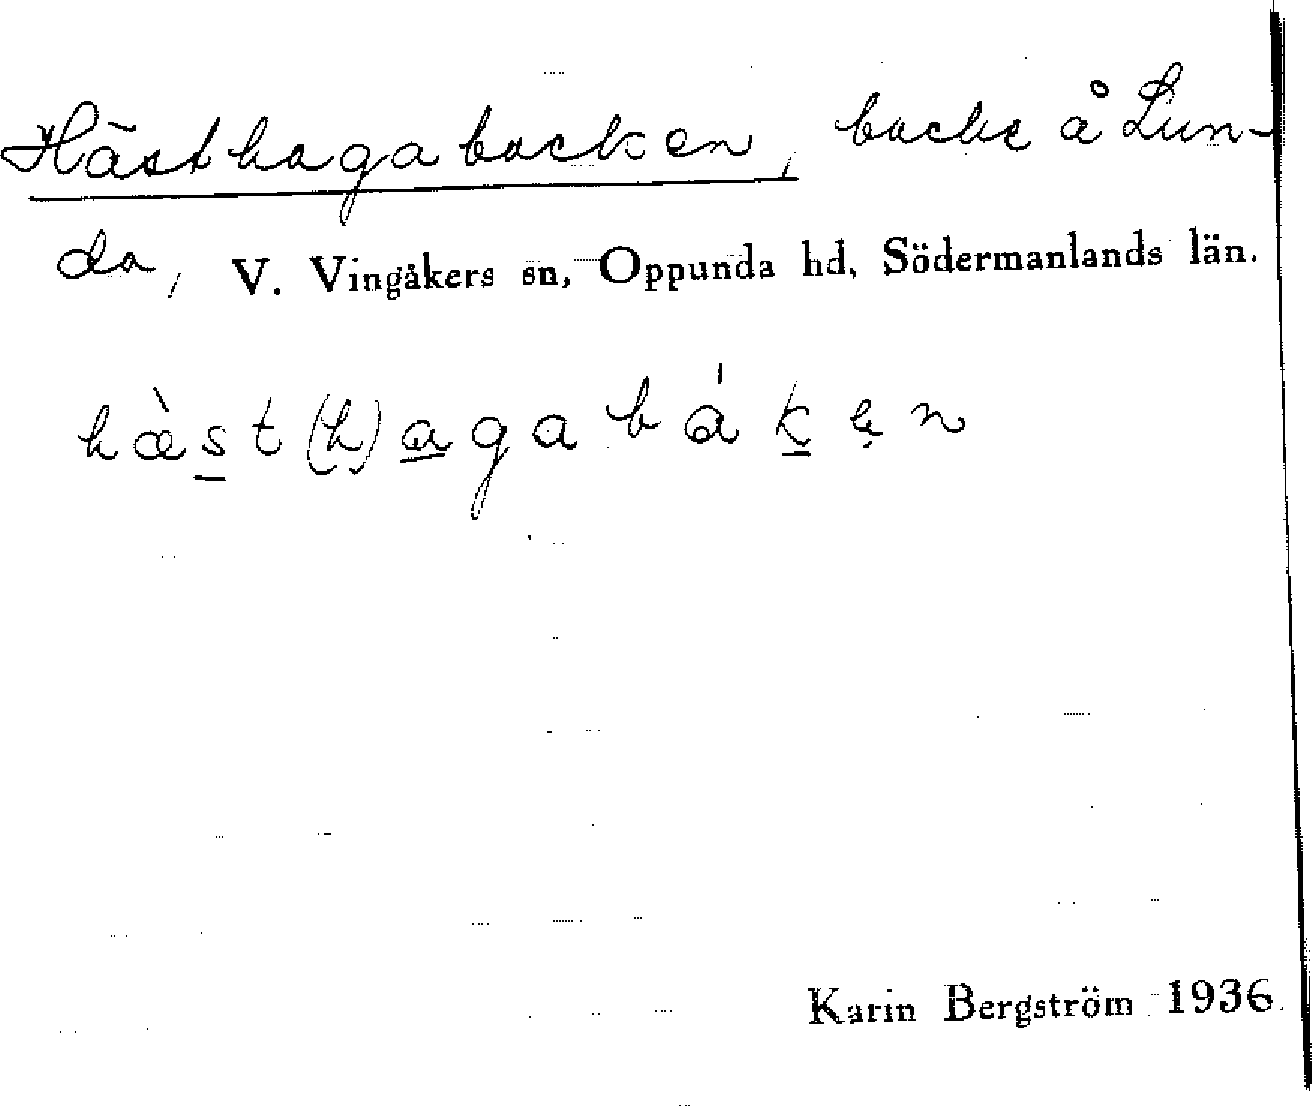 Hästhagabacken, backe å Lun-
da, V. Vingåkers sn, Oppunda hd, Södermanlands län.
hæ̀s̲t(h)a̲gabák̲ẹn
Karin Bergström 1936